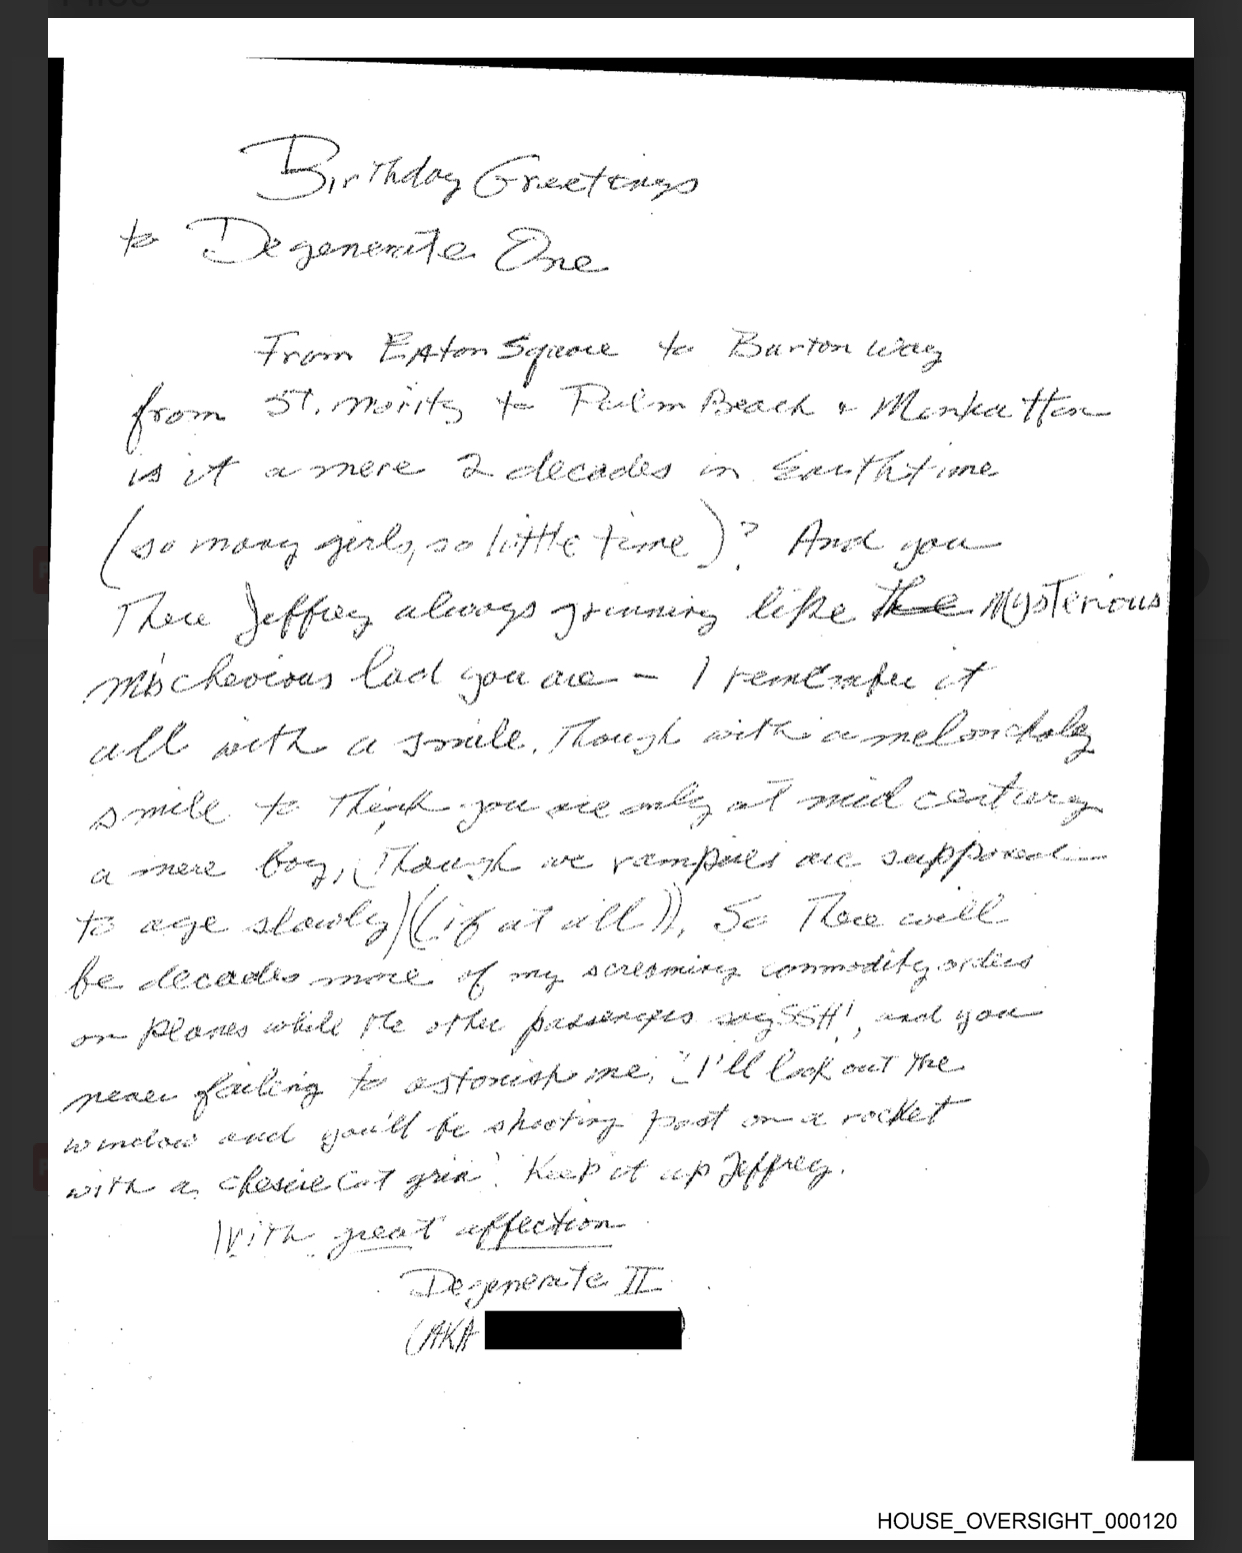 Birthday Greetings
to Degenerate One
From Eaton Square to Burton Way
from St. Moritz to Palm Beach & Manhattan
is it a mere 2 decades in Earthtime
(so many girls, so little time)? And you
There Jeffrey always grinning like the Mysterious
mischevious lad you are – I remember it
all with a smile. Though with a melancholy
smile to think you are only at mid century
a mere boy, (Though we vampires are supposed
to age slowly)((if at all)). So There will
be decades more of my screaming commodity orders
on Planes while the other passengers say SSH!, and you
never failing to astonish me, "I'll look out the
window and you'll be shooting past on a rocket
with a chesire Cat grin". Keep it up Jeffrey.
With great affection
Degenerate II
(AKA )
HOUSE_OVERSIGHT_000120